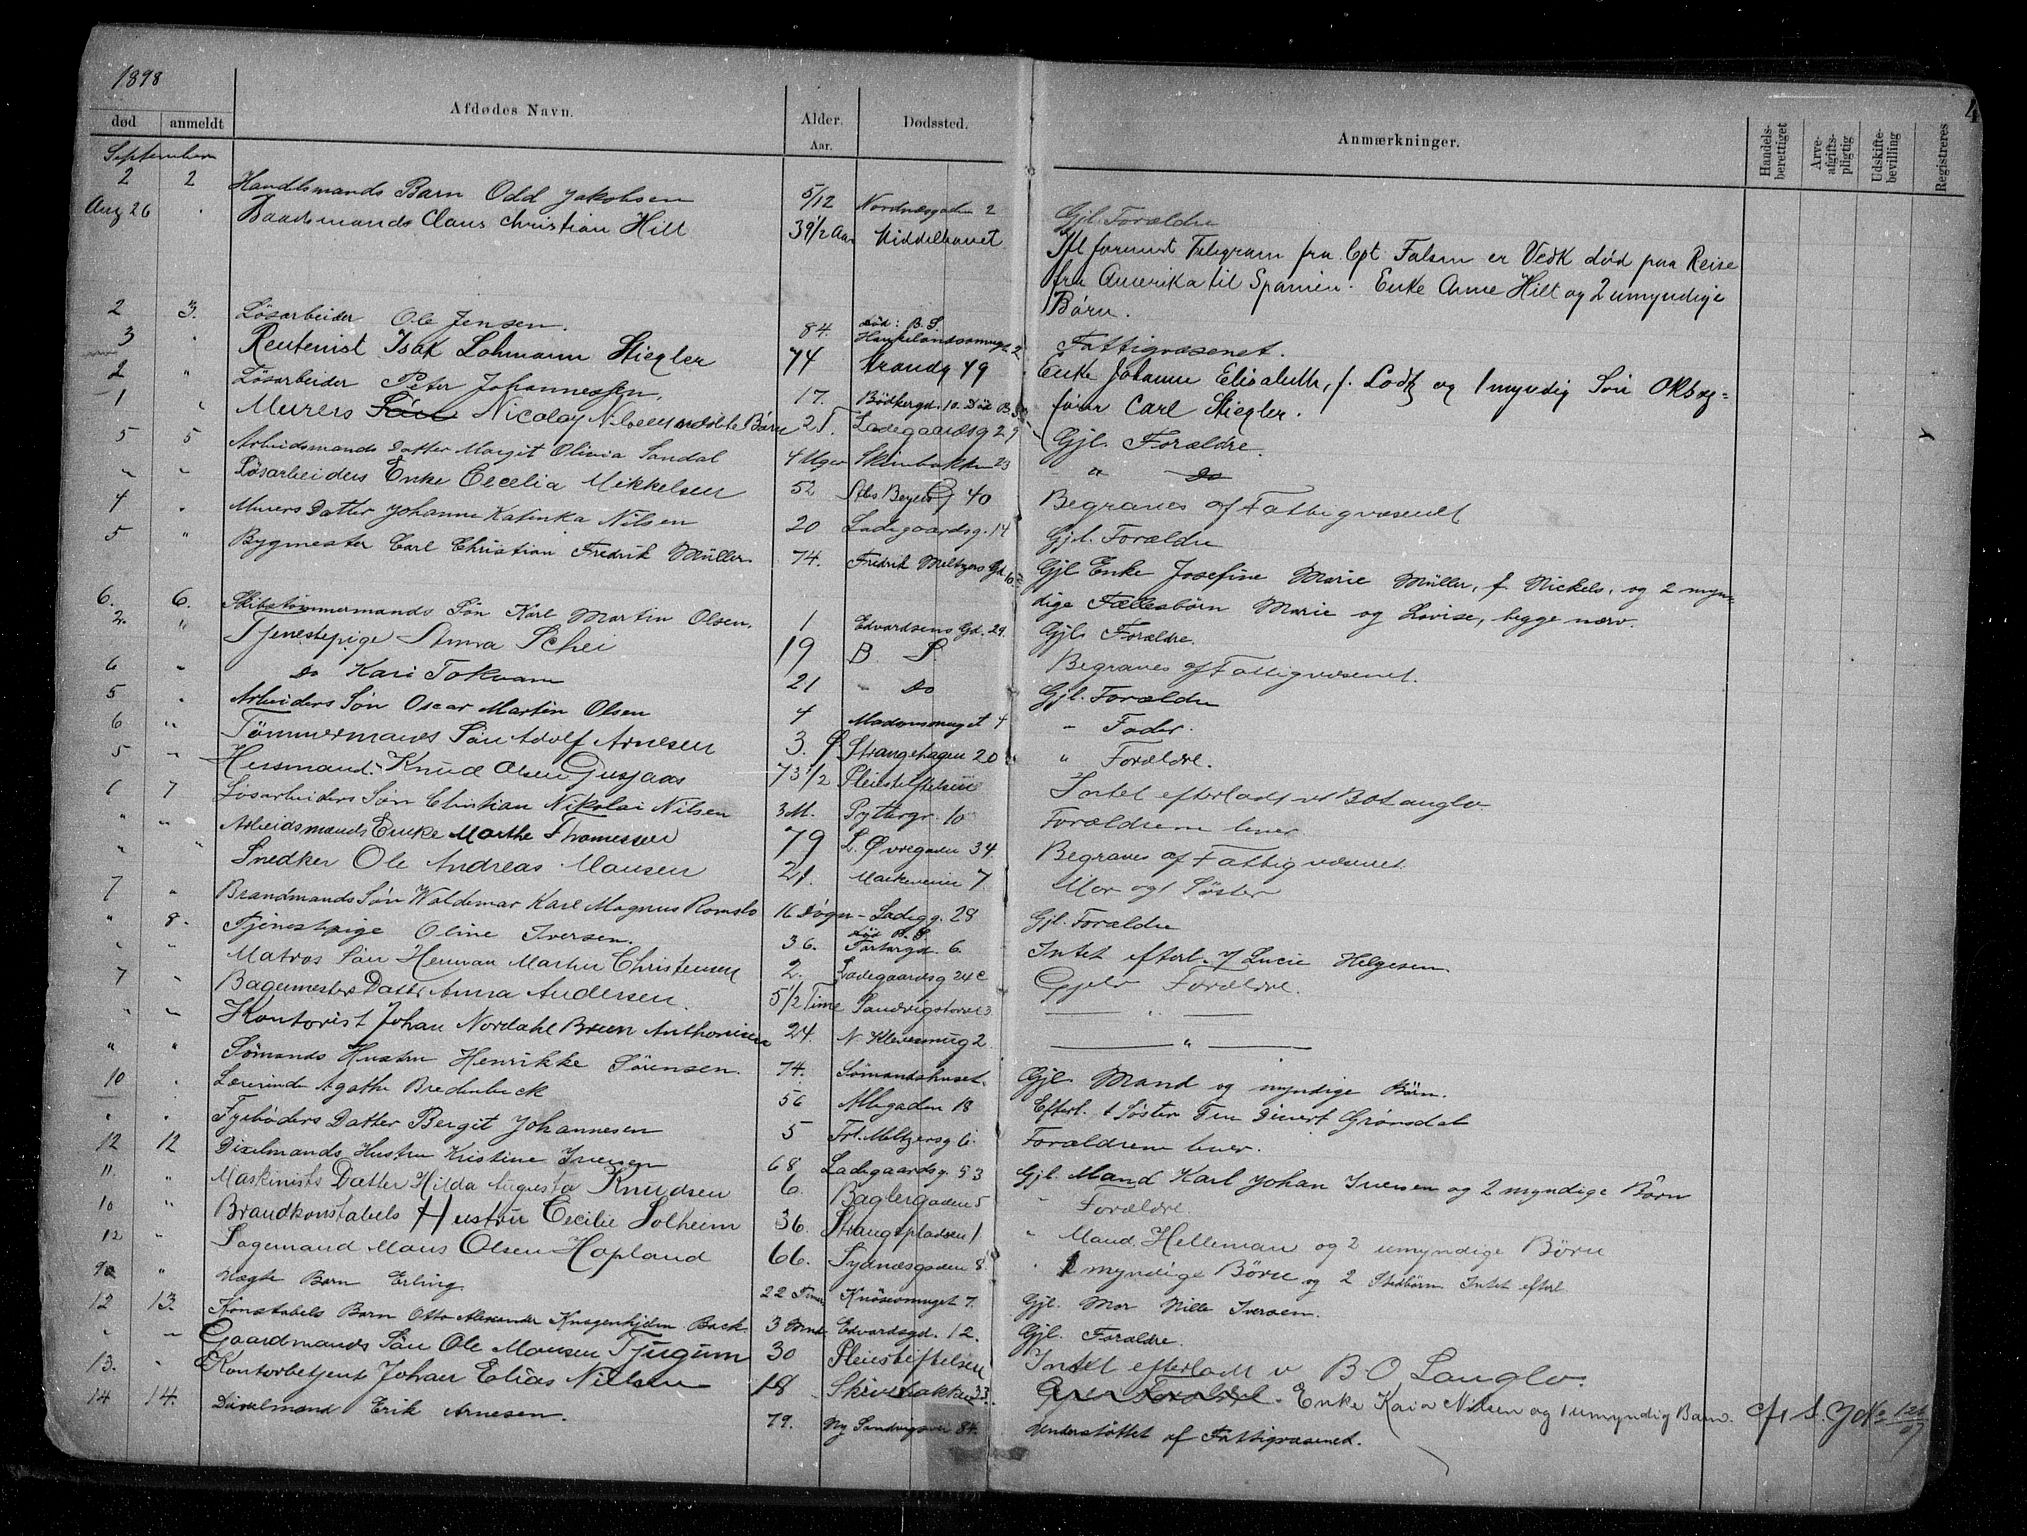 1898
død anmeldt Afdødes Navn. Alder. Aar. Dødssted. Anmærkninger. Handels-berettiget Arve-afgifts-pligtig Udskifte-bevilling Registreres 4
September
2 2 Handlsmands Barn Odd Jakobsen 5/12 Nordnæsgaden 2 Gjl. Forældre
Aug 26 " Baadsmands Claus Christian Hilt 39 1/2 Aar Middelhavet Ifl forevist Telegram fra Cpt. Falsen er Vedk død paa Reise
fra Amerika til Spanien. Enke Anne Hilt og 2 umyndige
Børn.
2 3. Løsarbeider Ole Jensen. 84. død: B. S. Haukelandssmuget 2 Fattigvæsenet.
3 " Rentenist Isak Lohmann Stiegler 74 Strandg 49 Enke Johanne Elisabeth, f. Lodtz og 1 myndig Søn Oktrog-
fører Carl Stiegler.
2 " Løsarbeider Peter Johannessen. 17. Bødkergd. 10. Død B. S.
1 " Murers Søn Nicolay Nilsens udøbte Barn 2 T. Ladegaardsg 29 Gjl. Forældre.
5 5 Arbeidsmands Datter Margit Olivia Sandal 4 Uger Skivebakken 23 " Do
" " Løsarbeiders Enke Cecelia Mikkelsen 52 Abs Beyers G 40 Begraves af Fattigvæsenet
4 " Murers Datter Johanne Katinka Nilsen 20 Ladegaardsg. 14 Gjl. Forældre
5 " Bygmester Carl Christian Fredrik Müller 74. Fredrik Meltzers Gd 10 Gjl Enke Josefine Marie Müller, f. Nickels, og 2 myn-
dige Fællesbørn Marie og Lovise, begge nærv.
6. 6. Skibstømmermands Søn Karl Martin Olsen. 1 Edvardsens Gd. 29. Gjl. Forældre.
2. " Tjenestepige Anna Schei 19 B. S. Begraves af Fattigvæsenet.
6 " Do Kari Tokvam 21 " Do Gjl. Forældre
5 " Arbeiders Søn Oscar Martin Olsen 4 Madamsmuget 4 " Fader.
6 " Tømmermands Søn Adolf Arnesen 3. Strangehagen 20 " Forældre.
5 " Husmand Knud Olsen Gusjaas 73 1/2 Pleiestiftelsen Intet efterladt v B O Langlo.
6 7 Løsarbeiders Søn Christian Nikolai Nilsen 3 M. Pyttergr. 10 Forældrene lever
" " Arbeidsmands Enke Marthe Thomessen 79 L. Øvregaden 34. Begraves af Fattigvæsenet.
" " Snedker Ole Andreas Monsen 21. Markeveien 7. Mor og 1 Søster
7 " Brandmands Søn Waldemar Karl Magnus Romslo 16 Døgn Ladegg. 28 Gjl. Forældre
" 8. Tjenestepige Oline Iversen. 36. død B. S. Fortargd. 6. Intet efterl. / Lucie Helgesen.
" " Matros Søn Herman Martin Christensen 2. Ladegaardsg 24 c Gjelv Forældre.
7 " Bagermesters Datter Anna Andersen 5 1/2 Time Sandvigstorvet 3 "
" " Kontorist Johan Nordahl Brun Anthonisen 24. N. Kleivesmug 2. "
" " Sømands Hustru Henrikke Sørensen. 74. Sømandshuset. Gjl. Mand og myndige Børn.
10 " Lærerinde Agathe Bredenbeck 56 Allegaden 18 Efterl. 1 Søster Fru Divert Grønsdal
" " Fyrbøders Datter Bergit Johannesen 5 Frl. Meltzersg 6. Forældrene lever.
12 12 Dixelmands Hustru Kristine Iversen 68 Ladegaardsg. 53 Gjl. Mand Karl Johan Iversen og 2 myndige Børn
11. " Maskinists Datter Hilda Augusta Knudsen 6. Baglergaden 5 " Forældre.
10 " Brandkonstabels Hustru Cecilie Solheim 36. Strangepladsen 1. " Mand Helleman og 2 umyndige Børn
12 " Sagemand Mons Olsen Hopland 66. Sydnæsgaden 8. " 2 myndige Børn og 2 Stedbørn Intet efterl
9 " Uægte Barn Erling. 22 Timer Knøsesmuget 7. Gjl. Mor Nille Iversen.
12 13. Konstabels Barn Otto Alexander Knagenhjelm Back 3 Mnd Edvardsgd. 12. Gjl. Forældre.
" " Gaardmands Søn Ole Monsen Tjugum 30 Pleiestiftelsen Intet efterladt v B O Langlo.
13. " Kontorbetjent Johan Elias Nilsen 18 Skivebakken 33. Gjl. Forældre. Enke Kaia Nilsen og 1 umyndig Barn. cfr S. J No 126/07
14 14. Dixelmand Erik Arnesen. 79. Ny Sandvigsvei 84. Understøttet af Fattigvæsenet.